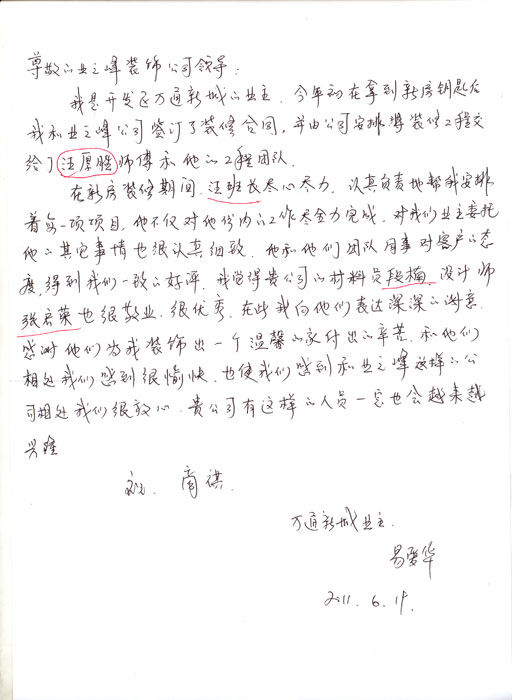 尊敬的业之峰装饰公司领导:
我是开发区万通新城的业主,今年初在拿到新房钥匙后
我和业之峰公司签订了装修合同,并由公司安排将装修工程交
给了汪厚胜师傅和他的工程团队。
在新房装修期间,汪班长尽心尽力,认真负责地帮我安排
着每一项项目,他不仅对他份内的工作尽全力完成,对我们业主委托
他的其它事情也很认真细致。他和他们团队用事对客户的态
度,得到我们一致的好评。我觉得贵公司的材料员段楠,设计师
张启荣也很敬业、很优秀,在此我向他们表达深深的谢意,
感谢他们为我装饰出一个温馨的家付出的辛苦,和他们
相处我们感到很愉快,也使我们感到和业之峰这样的公
司相处我们很放心。贵公司有这样的人员一定也会越来越
兴隆
祝 商祺.
万通新城业主.
易爱华
2011. 6. 19.